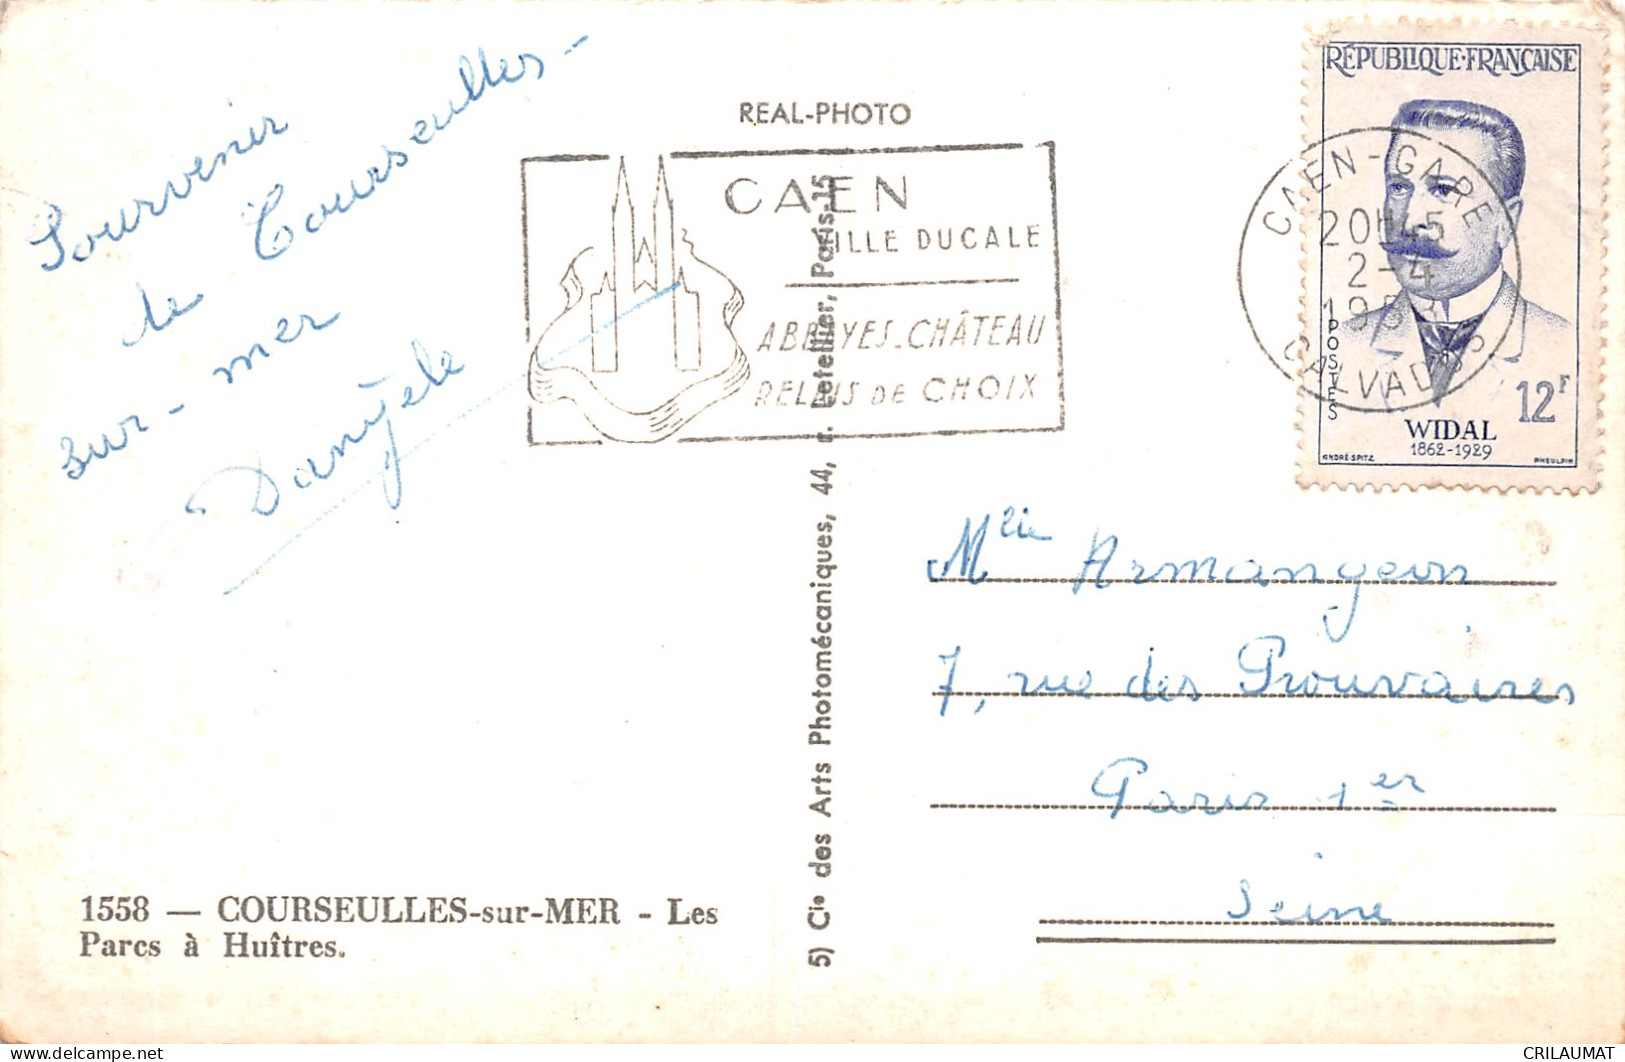 Souvenir
de Courseulles-
sur-mer
Danyèle
REAL-PHOTO
CAEN
VILLE DUCALE
ABBAYES-CHÂTEAU
RELAIS DE CHOIX
CAEN-GARE
20H45
2-4
1958
CALVADOS
RÉPUBLIQUE·FRANÇAISE
POSTES
12F
WIDAL
1862-1929
ANDRÉ-SPITZ
PHEULPIN
5) Cie des Arts Photomécaniques, 44, r. Letellier, Paris-15
Mlle Armangeon
7, rue des Prouvaires
Paris 1er
Seine
1558 — COURSEULLES-sur-MER - Les
Parcs à Huîtres.
CRILAUMAT